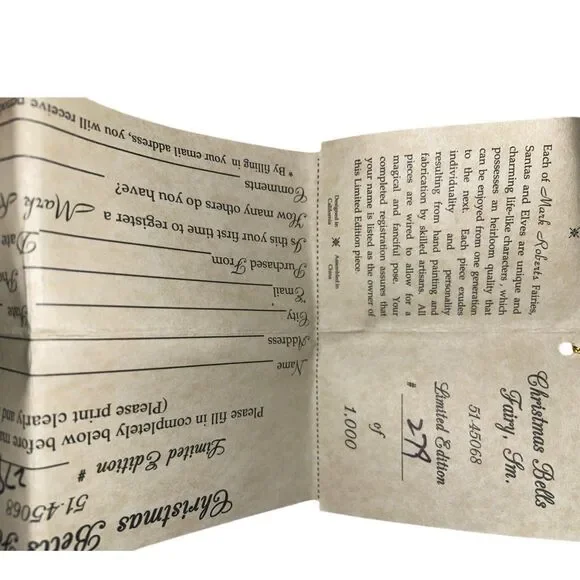 Each of Mark Roberts Fairies,
Santas and Elves are unique and
charming life-like characters , which
possesses an heirloom quality that
can be enjoyed from one generation
to the next. Each piece exudes
individuality and personality
resulting from hand painting and
fabrication by skilled artisans. All
pieces are wired to allow for a
magical and fanciful pose. Your
completed registration assures that
your name is listed as the owner of
this Limited Edition piece.
Designed in
California
Assembled in
China
Christmas Bells
Fairy, Sm.
51-45068
Limited Edition
# 279
of
1,000
Christmas Bells
51-45068
Limited Edition #
Please fill in completely below before
(Please print clearly and
Name
Address
City
Email
Purchased From
Date
Is this your first time to register a Mark
How many others do you have?
Comments
* By filling in your email address, you will receive